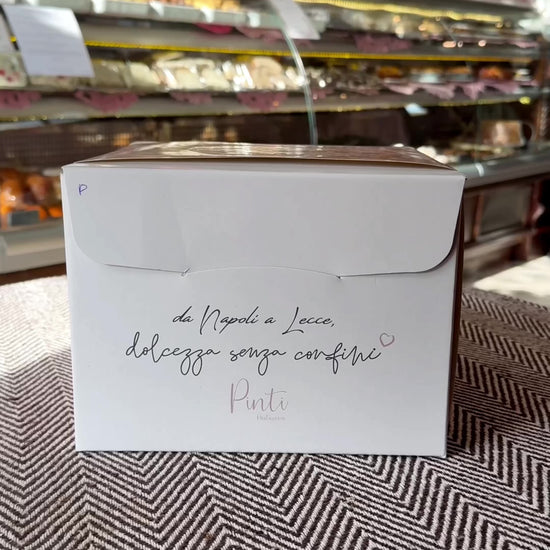 P
da Napoli a Lecce,
dolcezza senza confini
Pinti